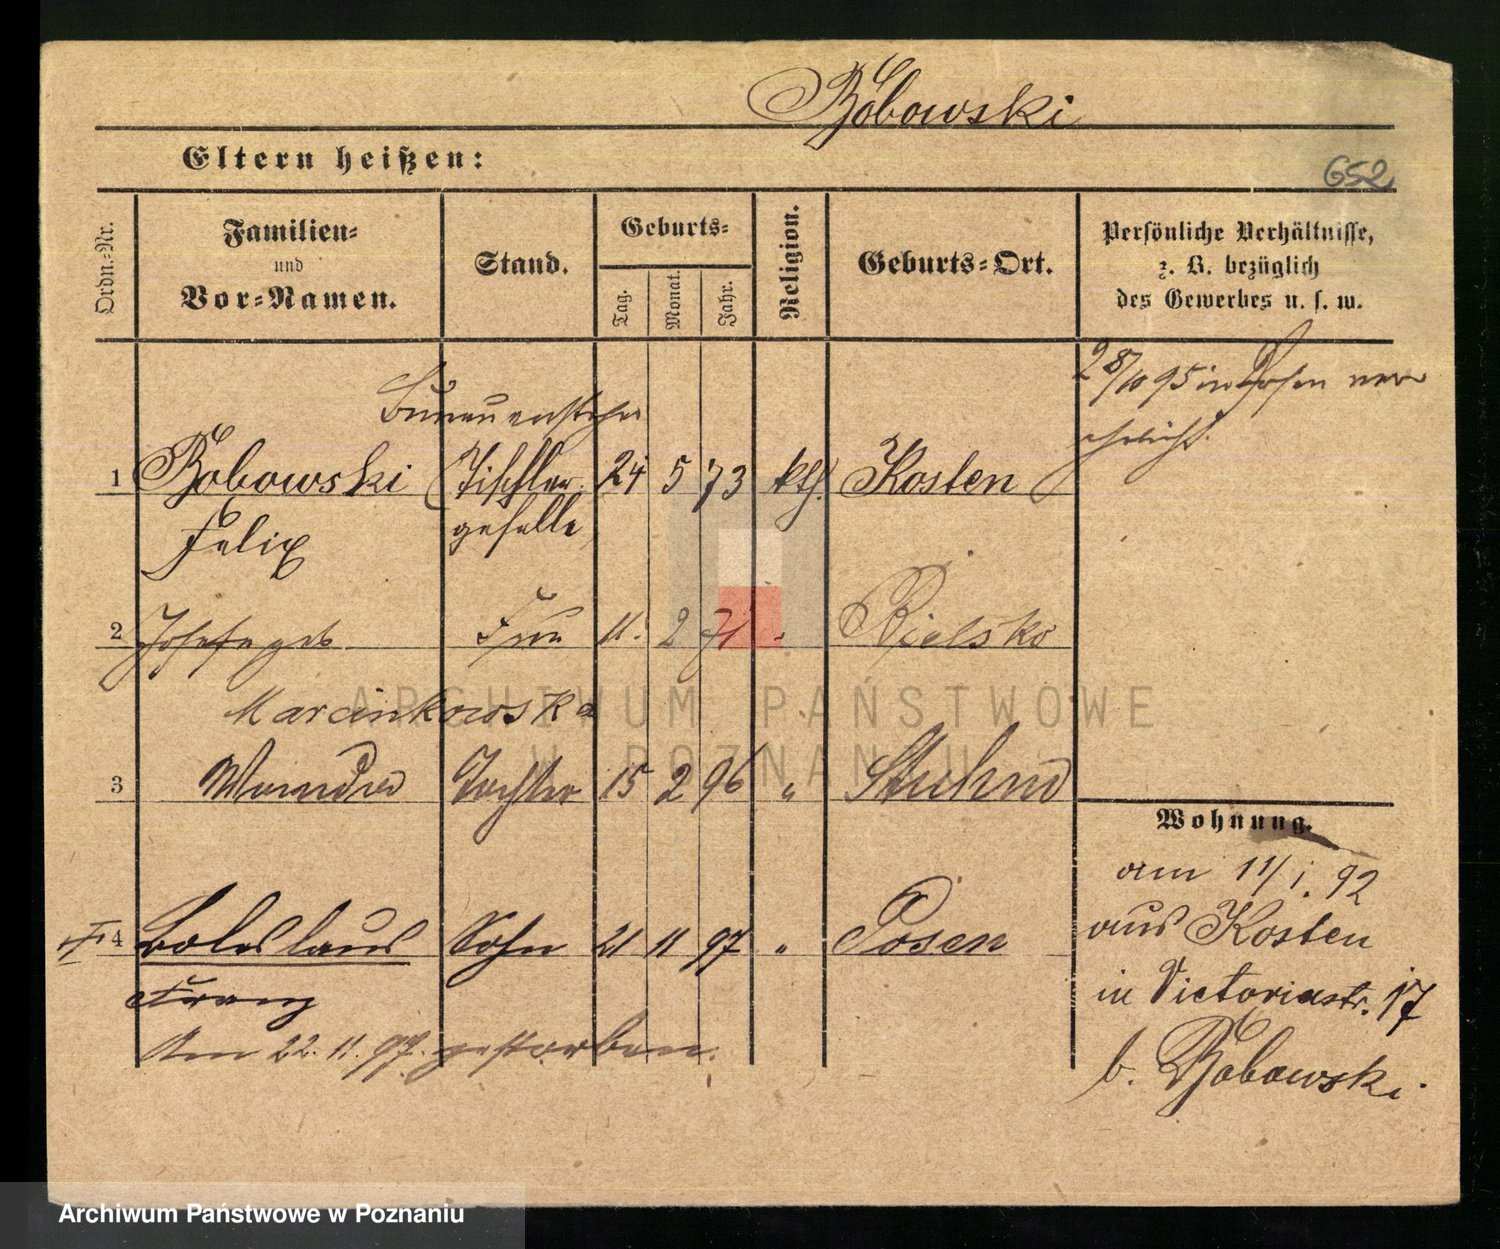 Bobowski
Eltern heißen:
652
Ordn.-Nr.
Familien-
und
Vor-Namen.
Stand.
Geburts-
Tag.
Monat.
Jahr.
Religion.
Geburts-Ort.
Persönliche Verhältnisse,
z. B. bezüglich
des Gewerbes u. s. w.
28/10 95 in Posen ver
ehelicht.
1 Bobowski Tischler 24 5 73 kth. Kosten
Felix geselle
2 Josefa geb Frau 11. 2 71 " Bielsko
Marcinkowska
3 Wanda Tochter 15 2 96 "
4 Boleslaus Sohn 21 11 97 " Posen
Franz
Am 22. 11. 97. gestorben.
Wohnung.
am 11/1. 92
aus Kosten
in Victoriastr. 17
b. Bobowski.
ARCHIWUM PAŃSTWOWE
W POZNANIU
Archiwum Państwowe w Poznaniu